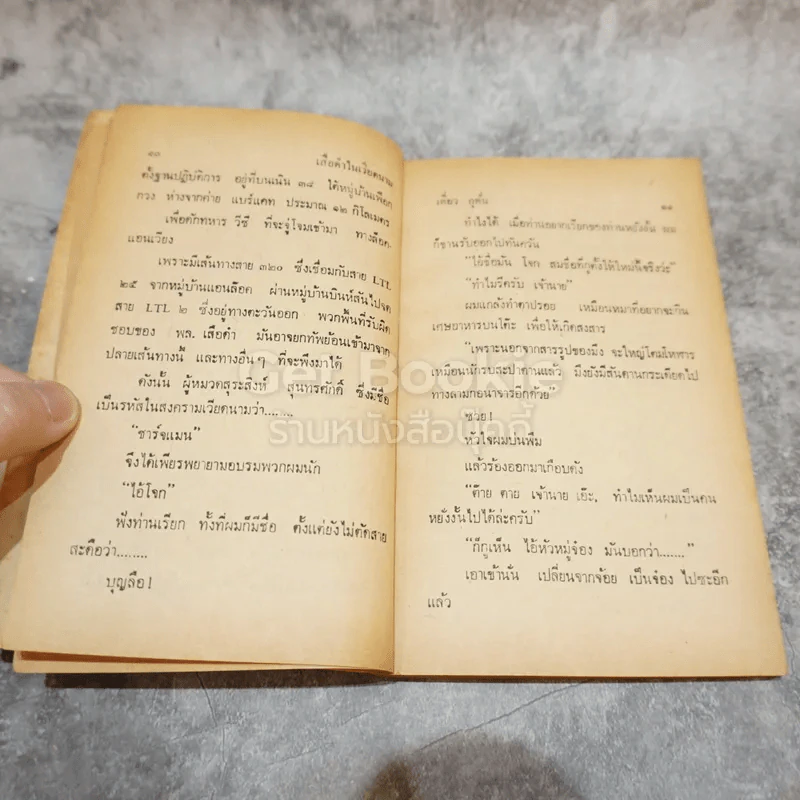 ๑๐ เสือดำในเวียดนาม
ตั้งฐานปฏิบัติการ อยู่ที่บนเนิน ๓๘ ใต้หมู่บ้านเฟือก
กวง ห่างจากค่าย แบร์แคท ประมาณ ๑๒ กิโลเมตร
เพื่อดักทหาร วีซี ที่จะจู่โจมเข้ามา ทางล็อค-
แอนเวียง
เพราะมีเส้นทางสาย ๓๒๐ ซึ่งเชื่อมกับสาย LTL
๒๕ จากหมู่บ้านแอนล็อค ผ่านหมู่บ้านบินห์สันไปจด
สาย LTL ๒ ซึ่งอยู่ทางตะวันออก พวกพื้นที่รับผิด
ชอบของ พล. เสือดำ มันอาจยกทัพย้อนเข้ามาจาก
ปลายเส้นทางนี้ และทางอื่นๆ ที่จะพึงมาได้
ดังนั้น ผู้หมวดสุระสิงห์ สุนทรศักดิ์ ซึ่งมีชื่อ
เป็นรหัสในสงครามเวียดนามว่า........
“ชาร์จแมน”
จึงได้เพียรพยายามอบรมพวกผมนัก
“ไอ้โจก”
ฟังท่านเรียก ทั้งที่ผมก็มีชื่อ ตั้งแต่ยังไม่ตัดสาย
สะดือว่า........
บุญลือ!
เคี่ยว กุดั่น ๑๑
ทำไงได้ เมื่อท่านอยากเรียกของท่านหยั่งงั้น ผม
ก็ขานรับออกไปทันควัน
“ไอ้ชื่อมัน โจก สมชื่อที่กูตั้งให้ใหม่นี้จริงว่ะ”
“ทำไมรึครับ เจ้านาย”
ผมแกล้งทำตาปรอย เหมือนหมาที่อยากจะกิน
เศษอาหารบนโต๊ะ เพื่อให้เกิดสงสาร
“เพราะนอกจากสารรูปของมึง จะใหญ่โตมโหฬาร
เหมือนนักรบสะปาตานแล้ว มึงยังมีสันดานกระเดียดไป
ทางลามกอนาจารอีกด้วย”
ซวย!
หัวใจผมบ่นพึม
แล้วร้องออกมาเกือบดัง
“ต๊าย ตาย เจ้านาย เอ๊ะ, ทำไมเห็นผมเป็นคน
หยั่งงั้นไปได้ล่ะครับ”
“ก็กูเห็น ไอ้หัวหมู่จ๋อง มันบอกว่า.......”
เอาเข้านั่น เปลี่ยนจากจ้อย เป็นจ๋อง ไปซะอีก
แล้ว
Get Bookie
ร้านหนังสือบุ๊คกี้